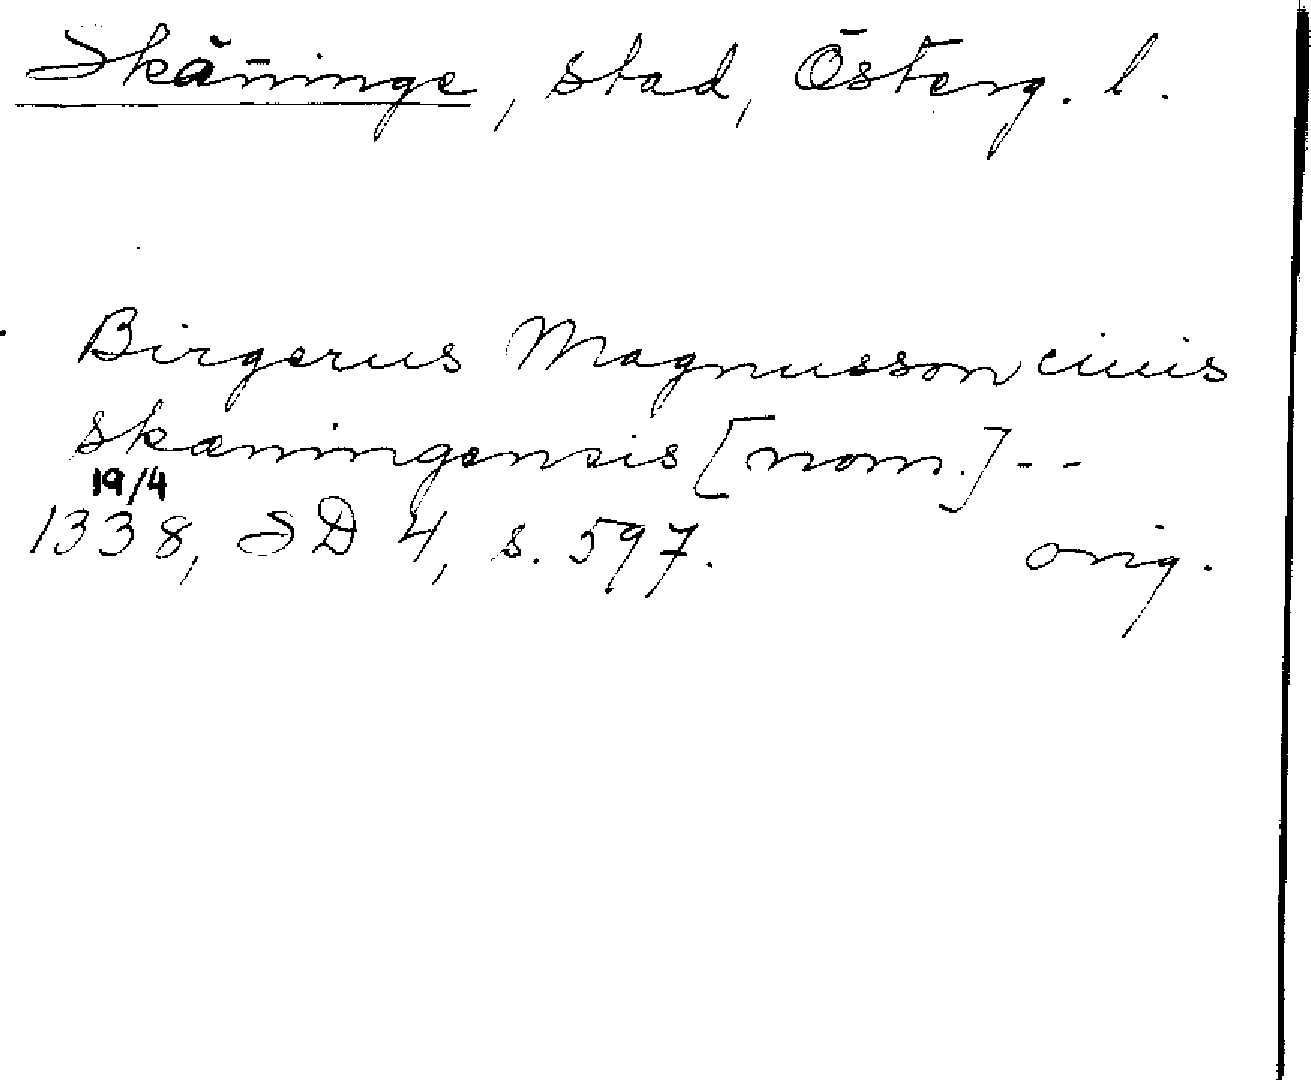 Skänninge, stad, Österg. l.
Birgerus Magnusson ciuis
skæningensis [nom.] - -
19/4
1338, SD 4, s. 597. orig.